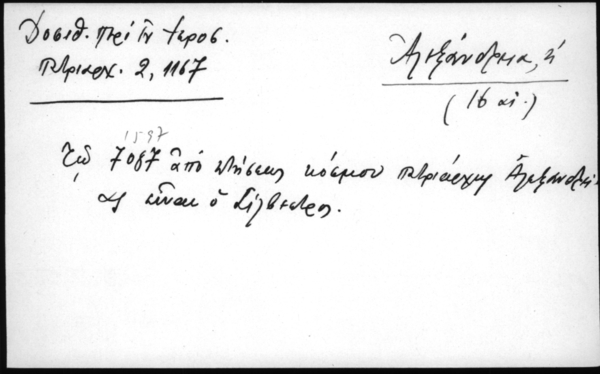 Δοσιθ. περί Ἱεροσ.
πατριαρχ. 2, 1167
Ἀλεξάνδρεια, ἡ
(16 αἰ.)
1597
Τῷ 7087 ἀπό κτήσεως κόσμου πατριάρχης Ἀλεξανδρεί-
ας εἶναι ὁ Σίλβεστρος.